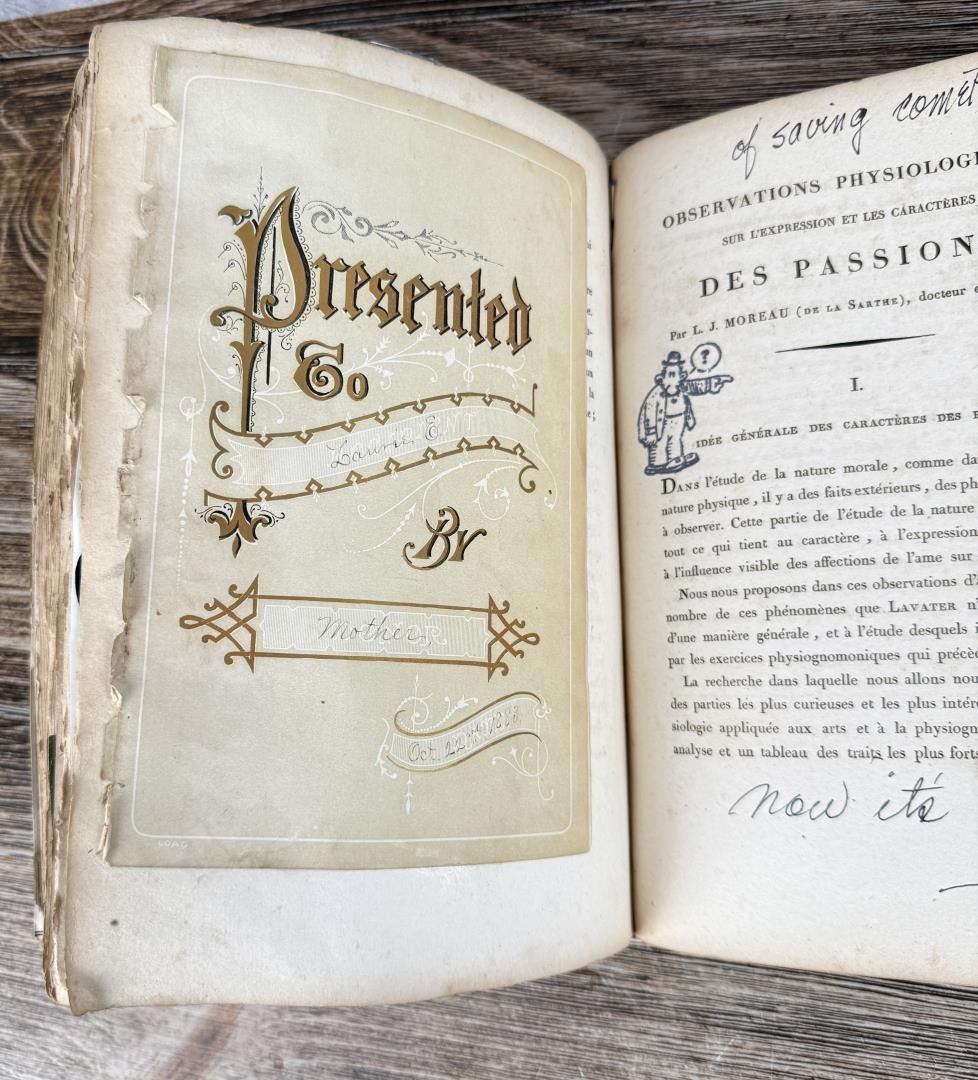 Presented
To
Laurie E.
By
Mother
Oct. 22nd,
of saving
OBSERVATIONS
SUR L'EXPRESSION ET LES CARACTÈRES
DES PASSION
Par L. J. MOREAU (DE LA SARTHE), docteur e
?
I.
IDÉE GÉNÉRALE DES CARACTÈRES DES
DANS l'étude de la nature morale, comme da
nature physique, il y a des faits extérieurs, des ph
à observer. Cette partie de l'étude de la nature
tout ce qui tient au caractère, à l'expression
à l'influence visible des affections de l'ame sur
Nous nous proposons dans ces observations d'
nombre de ces phénomènes que LAVATER n'
d'une manière générale, et à l'étude desquels i
par les exercices physiognomoniques qui précè
La recherche dans laquelle nous allons nou
des parties les plus curieuses et les plus intére
siologie appliquée aux arts et à la physiogn
analyse et un tableau des traits les plus forts
now it's